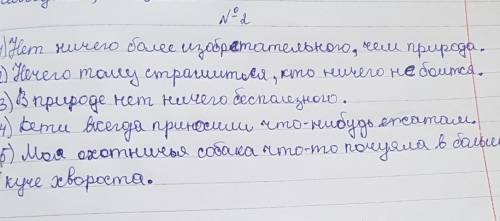 №2
1) Нет ничего более изобретательного, чем природа.
2) Нечего тому страшиться, кто ничего не боится.
3) В природе нет ничего беспалезного.
4) Дети всегда приносили что-нибудь
5) Моя охотничья собака что-то почуяла в больш
куче хвороста.